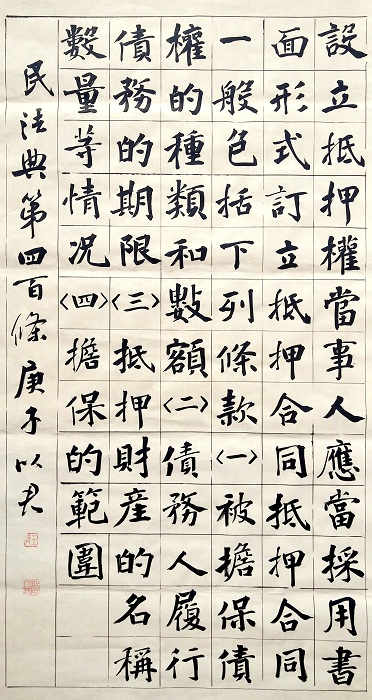 設立抵押權當事人應當採用書
面形式訂立抵押合同抵押合同
一般包括下列條款〈一〉被擔保債
權的種類和數額〈二〉債務人履行
債務的期限〈三〉抵押財産的名稱
數量等情况〈四〉擔保的範圍
民法典第四百條庚子以君